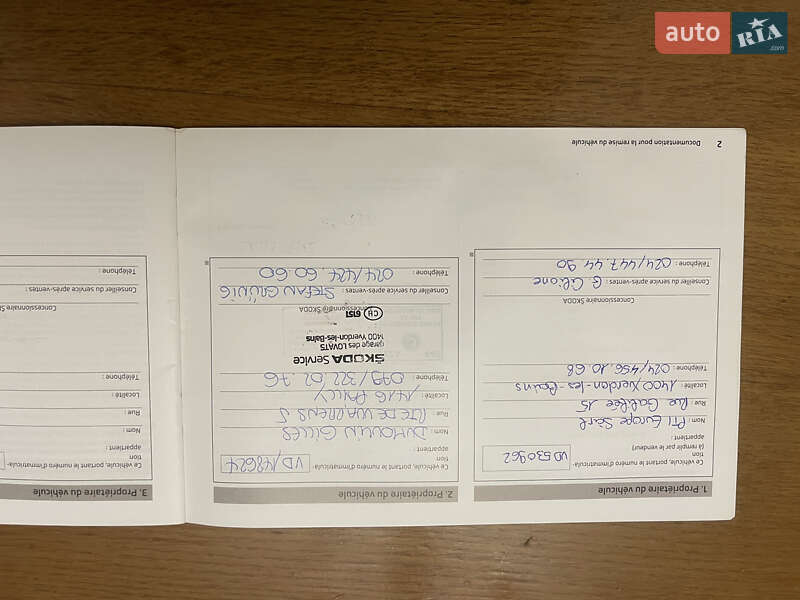 auto RIA .com
2 Documentation pour la remise du véhicule
1. Propriétaire du véhicule
Ce véhicule, portant le numéro d'immatricula-
tion
VD 530962
(à remplir par le vendeur)
appartient :
Nom : PTI Europe Sàrl
Rue : Rue Galilée 15
Localité : 1400 Yverdon-les-Bains
Téléphone : 024/456.10.68
Concessionnaire ŠKODA
Conseiller du service après-ventes : G. Cilione
Téléphone : 024/447.44.90
2. Propriétaire du véhicule
Ce véhicule, portant le numéro d'immatricula-
tion
VD/48624
appartient :
Nom : DUMOULIN GILLES
Rue : RTE DE VUARRENS 5
Localité : 1416 PAILLY
Téléphone : 079/322.02.76
ŠKODA Service
garage des LOVATS
1400 Yverdon-les-Bains
CH 6151
Concessionnaire ŠKODA
Conseiller du service après-ventes : STEFAN
Téléphone : 024/424.60.60
3. Propriétaire du véhicule
Ce véhicule, portant le numéro d'immatricula-
tion
appartient :
Nom :
Rue :
Localité :
Téléphone :
Concessionnaire Š
Conseiller du service après-ventes :
Téléphone :